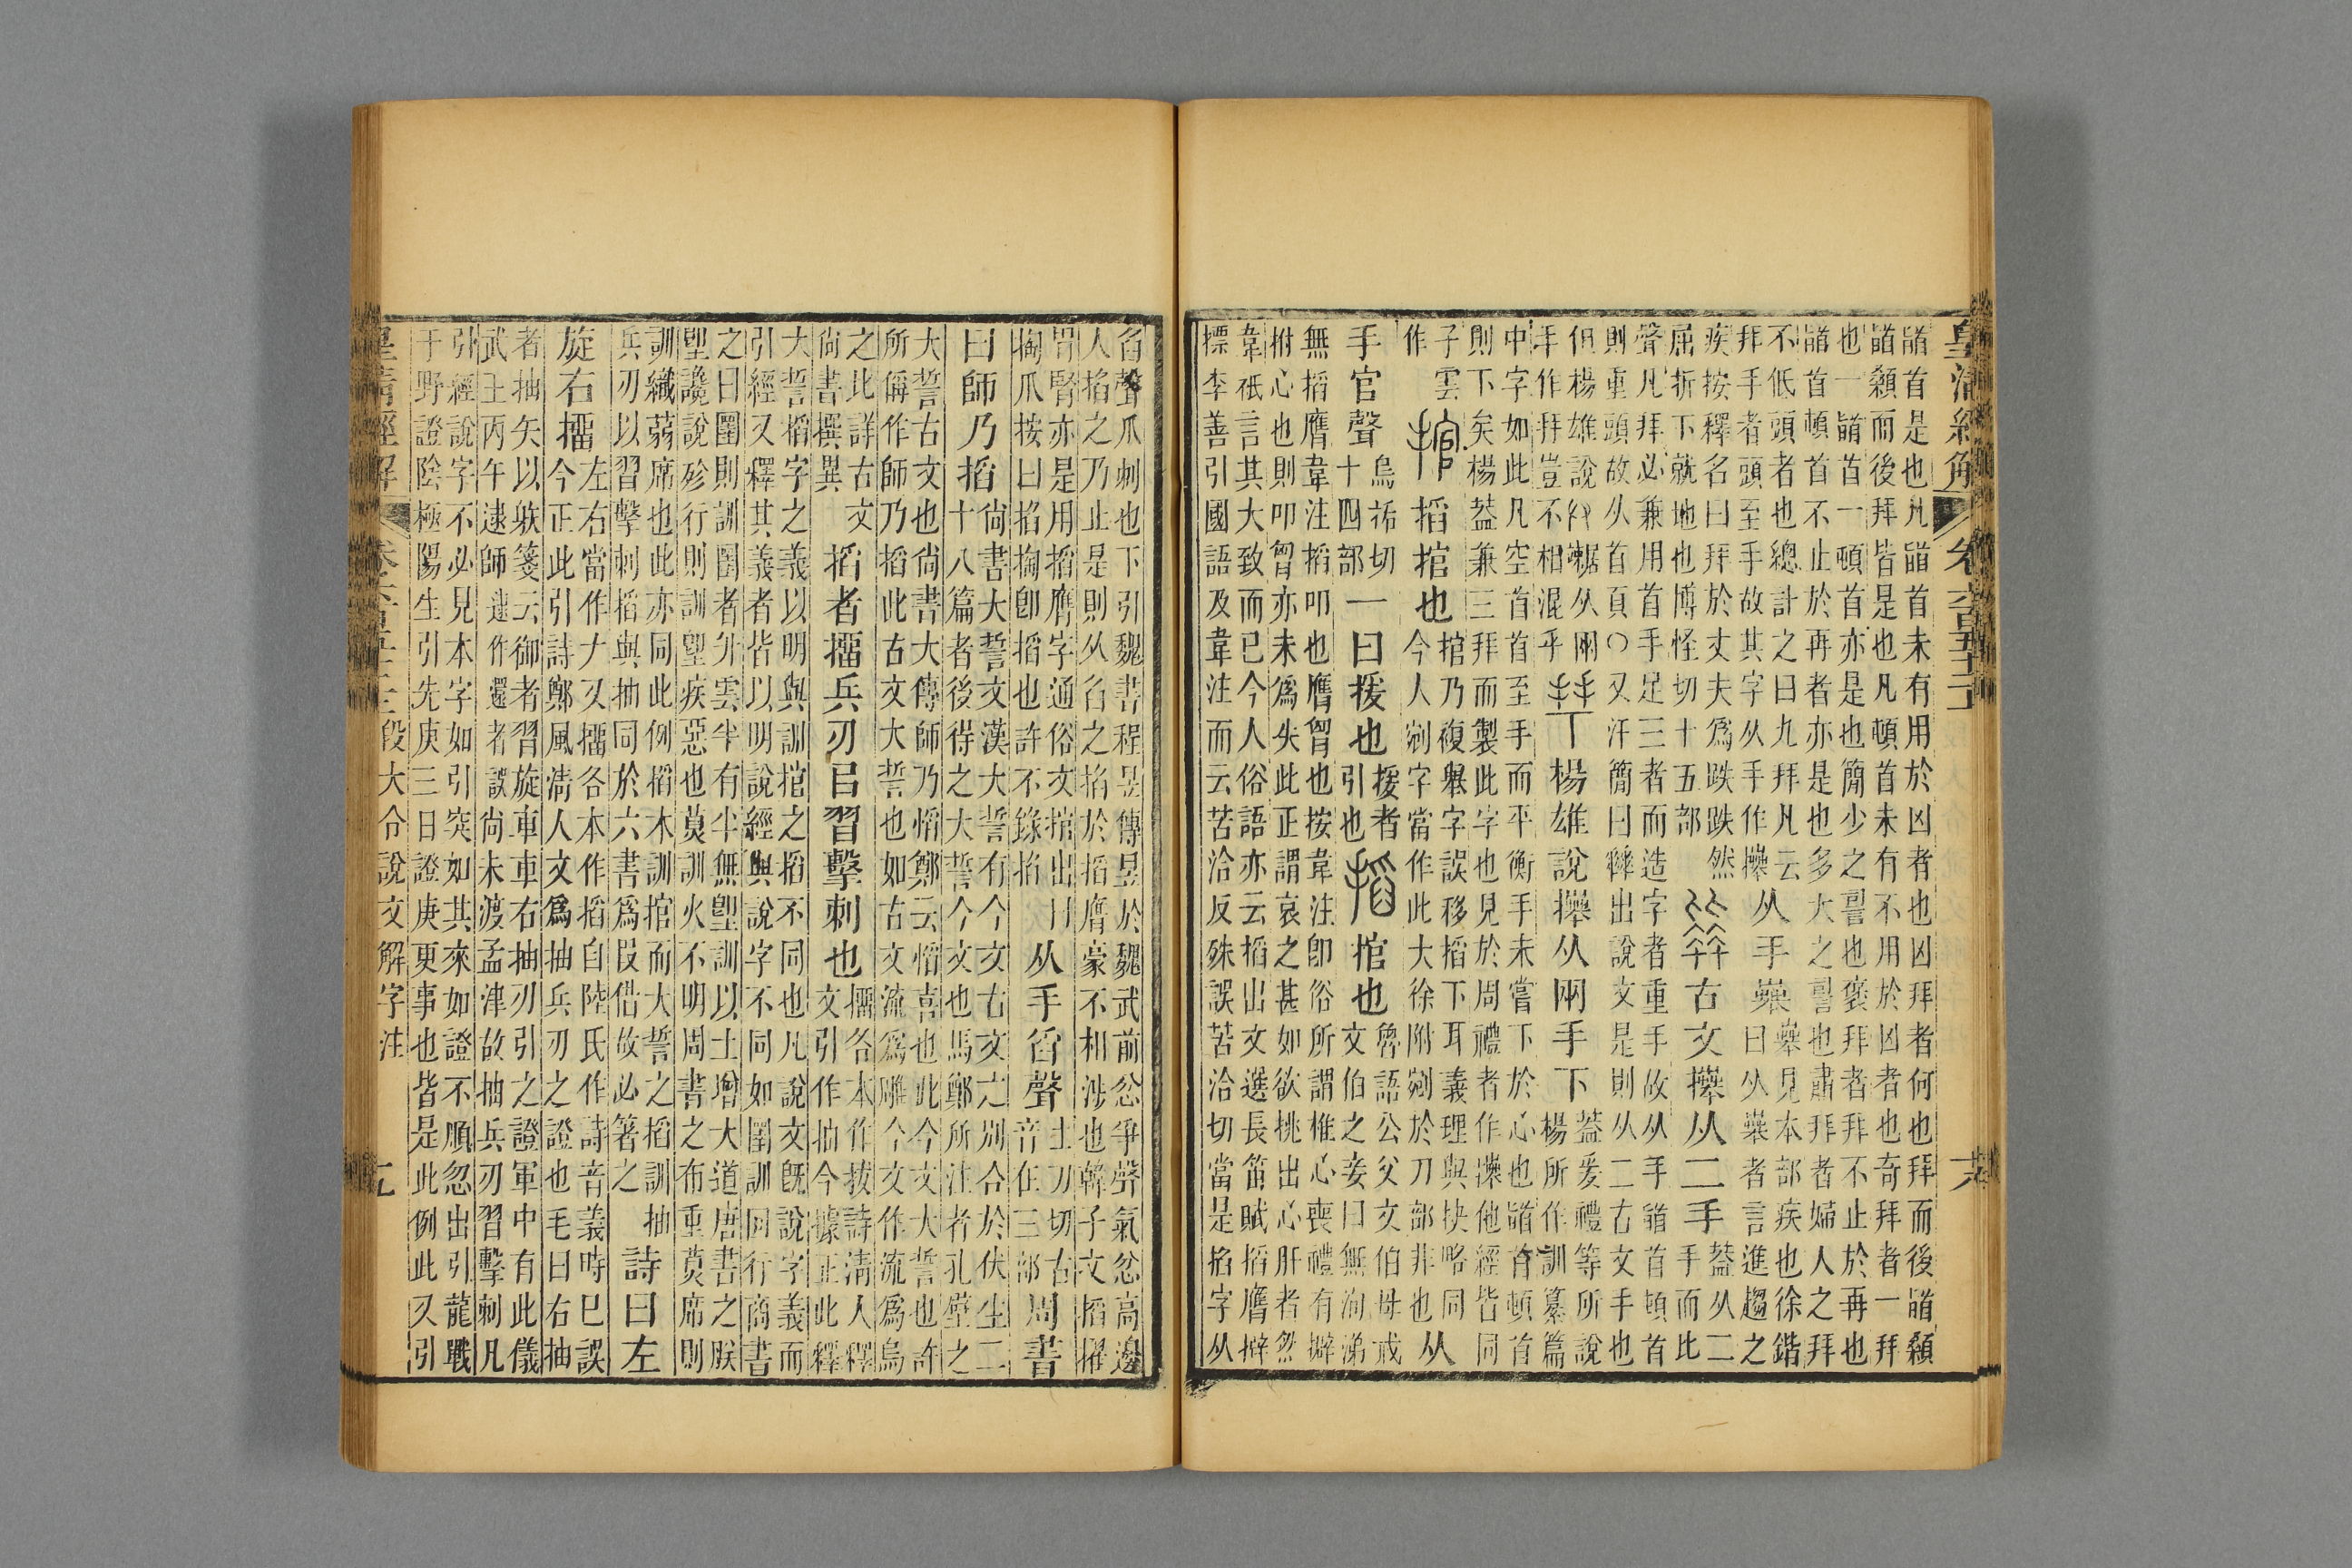 皇清經解 卷六百五十二
䭫首是也凡䭫首未有用於凶者也凶拜者何也拜而後䭫顙
䭫顙而後拜皆是也凡頓首未有不用於凶者也奇拜者一拜
也一䭫首一頓首亦是也簡少之謂也褒拜者拜不止於再也
䭫首頓首不止於再者亦是也多大之謂也肅拜者婦人之拜
不低頭者也總計之曰九拜凡云
拜手者頭至手故其字从手作𢷎
从手𠦪
𠦪見本部疾也徐鍇
曰从𠦪者言進趨之
疾按釋名曰拜於丈夫爲跌跌然
屈折下就地也博怪切十五部
古文𢷎从二手
蓋从二
手而比
聲凡拜必兼用首手足三者而造字者重手故从手䭫首頓首
則重頭故从首頁○又汗簡曰𢫶出說文是則从二古文手也
楊雄說𢷎从㒳手下
蓋爰禮等所說
楊所作訓纂篇
但楊雄說从㒳
手作拜豈不相混乎
中字如此凡空首首至手而平衡手未嘗下於心也䭫首頓首
則下矣楊蓋兼三拜而製此字也見於周禮者作𢷎他經皆同
搯捾也
捾乃複舉字誤移搯下耳義理與抉略同
今人剜字當作此大徐附剜於刀部非也
从
手官聲
烏𣅜切
十四部
一曰援也
援者
引也
搯捾也
魯語公父文伯母戒
文伯之妾曰無洵涕
無搯膺韋注搯叩也膺胷也按韋注卽俗所謂椎心喪禮有擗
拊心也則叩胷亦未爲失此正謂哀之甚如欲挑出心肝者然
韋祇言其大致而已今人俗語亦云搯出文選長笛賦搯膺擗
摽李善引國語及韋注而云苦洽反殊誤苦洽切當是掐字从
臽聲爪刺也下引魏書程昱傳昱於魏武前忿爭聲氣忿高邊
人掐之乃止是則从臽之掐於搯膺豪不相涉也韓子文搯擢
胃腎亦是用搯膺字通俗文捾出曰
掏爪按曰掐掏卽搯也許不錄掐
从手舀聲
土刀切古
音在三部
周書
曰師乃搯
尙書大誓文漢大誓有今文古文之別合於伏生二
十八篇者後得之大誓今文也馬鄭所注者孔壁之
大誓古文也尙書大傳師乃慆鄭云慆喜也此今文大誓也許
所偁作師乃搯此古文大誓也如古文流爲雕今文作流爲烏
之比詳古文
尙書撰異
搯者𢭆兵刃㠯習擊刺也
𢭆各本作拔詩淸人釋
文引作抽今據正此釋
大誓搯字之義以明與訓捾之搯不同也凡說文旣說字義而
引經又釋其義者皆以明說經與說字不同如圛訓回行商書
之曰圛則訓圛者升雲半有半無堲訓以土增大道唐書之朕
堲讒說殄行則訓堲疾惡也莫訓火不明周書之布重莫席則
訓纖蒻席也此亦同此例搯本訓捾而大誓之搯訓抽
兵刃以習擊刺搯與抽同於六書爲叚借故必箸之
詩曰左
旋右𢭆
左右當作𠂇又𢭆各本作搯自陸氏作詩音義時已誤
今正此引詩鄭風淸人文爲抽兵刃之證也毛曰右抽
者抽矢以躲箋云御者習旋車車右抽刃引之證軍中有此儀
武王丙午逮師逮作還者誤尙未渡孟津故抽兵刃習擊刺凡
引經說字不必見本字如引突如其來如證不順忽出引龍戰
于野證陰極陽生引先庚三日證庚更事也皆是此例此又引
皇清經解 卷六百五十二 段大令說文解字注